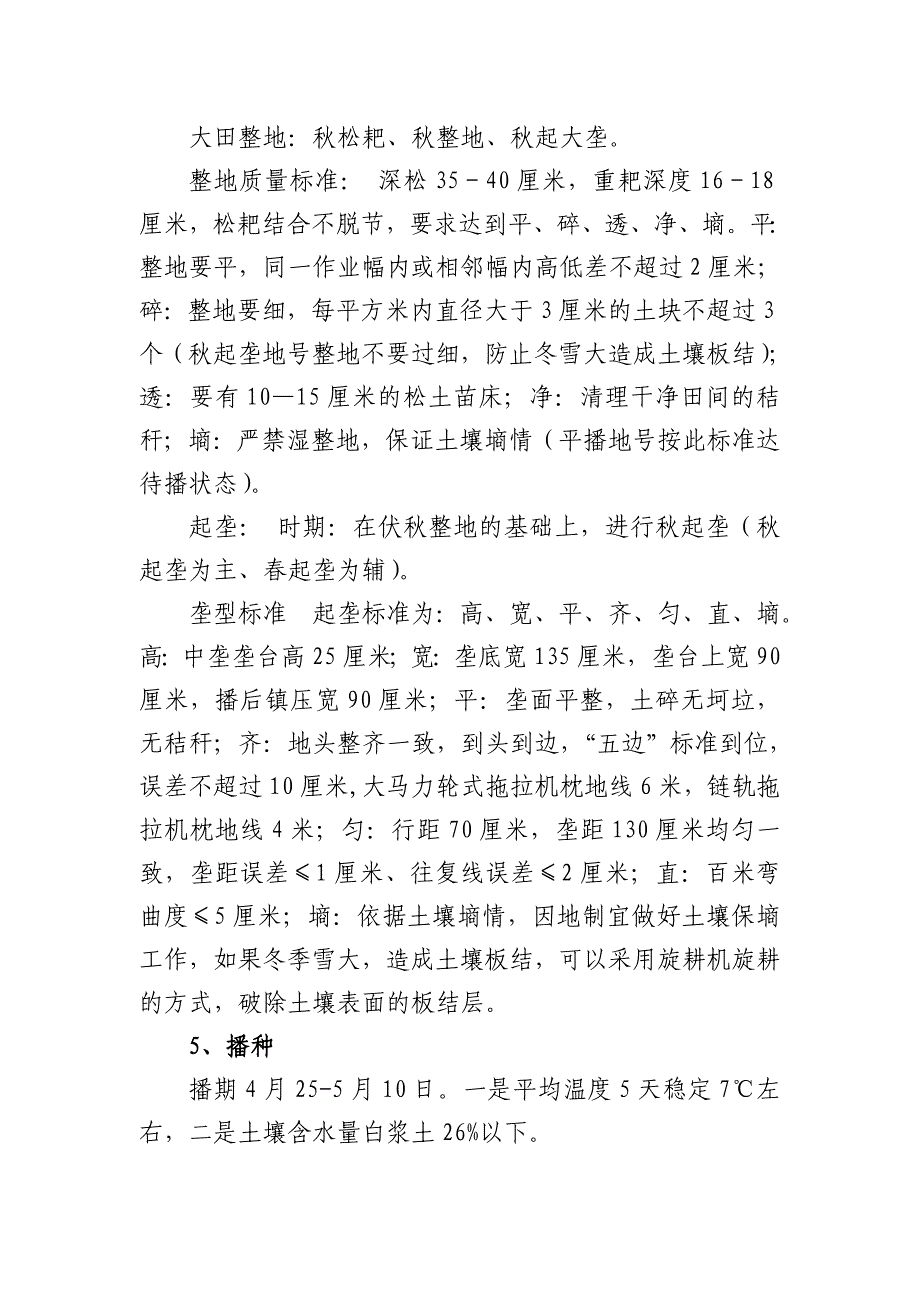 大田整地：秋松耙、秋整地、秋起大垄。
整地质量标准： 深松 35－40 厘米，重耙深度 16－18
厘米，松耙结合不脱节，要求达到平、碎、透、净、墒。平：
整地要平，同一作业幅内或相邻幅内高低差不超过 2 厘米；
碎：整地要细，每平方米内直径大于 3 厘米的土块不超过 3
个（秋起垄地号整地不要过细，防止冬雪大造成土壤板结）；
透：要有 10—15 厘米的松土苗床；净：清理干净田间的秸
秆；墒：严禁湿整地，保证土壤墒情（平播地号按此标准达
待播状态）。
起垄： 时期：在伏秋整地的基础上，进行秋起垄（秋
起垄为主、春起垄为辅）。
垄型标准 起垄标准为：高、宽、平、齐、匀、直、墒。
高：中垄垄台高 25 厘米；宽：垄底宽 135 厘米，垄台上宽 90
厘米，播后镇压宽 90 厘米；平：垄面平整，土碎无坷垃，
无秸秆；齐：地头整齐一致，到头到边，“五边”标准到位，
误差不超过 10 厘米,大马力轮式拖拉机枕地线 6 米，链轨拖
拉机枕地线 4 米；匀：行距 70 厘米，垄距 130 厘米均匀一
致，垄距误差≤1 厘米、往复线误差≤2 厘米；直：百米弯
曲度≤5 厘米；墒：依据土壤墒情，因地制宜做好土壤保墒
工作，如果冬季雪大，造成土壤板结，可以采用旋耕机旋耕
的方式，破除土壤表面的板结层。
5、播种
播期 4 月 25-5 月 10 日。一是平均温度 5 天稳定 7℃左
右，二是土壤含水量白浆土 26%以下。